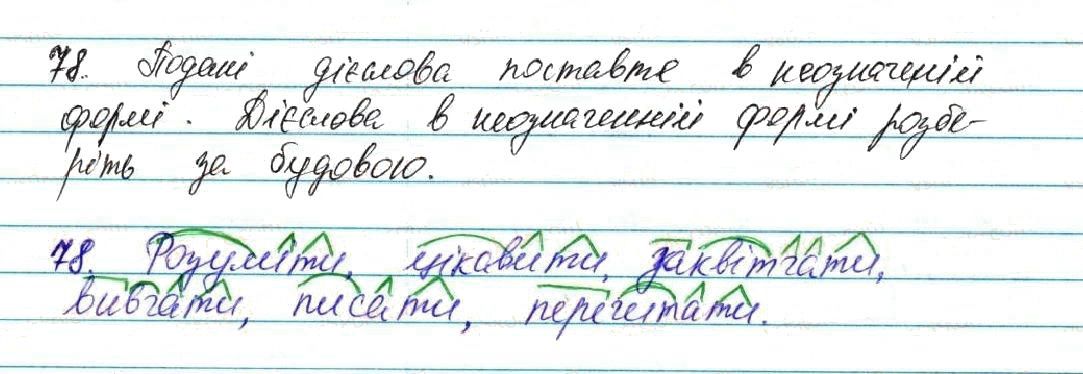 78. Подані дієслова поставте в неозначеній
формі. Дієслова в неозначенній формі розбе-
ріть за будовою.
78. Розуміти, цікавити, заквітчати,
вивчати, писати, перечитати.